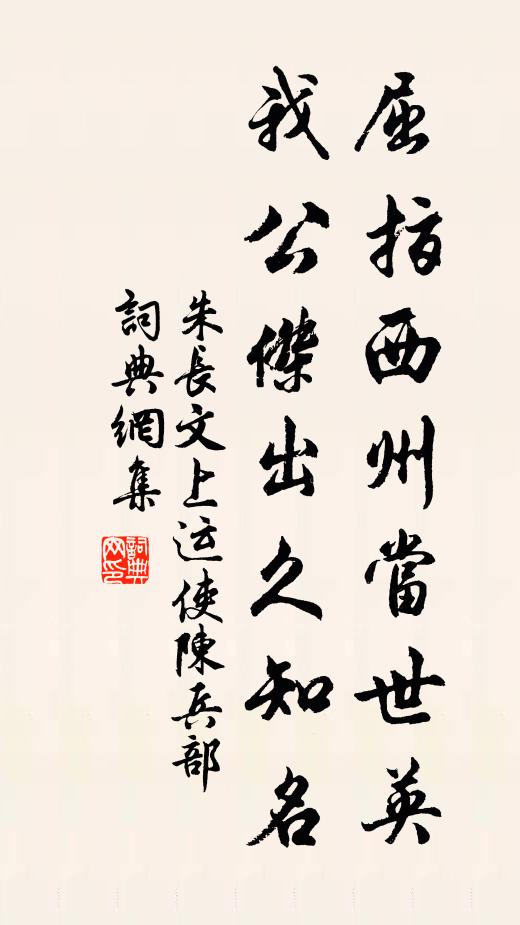 屈指西州當世英
我公傑出久知名
朱長文上运使陳兵部
詞典網集
詞典
网印